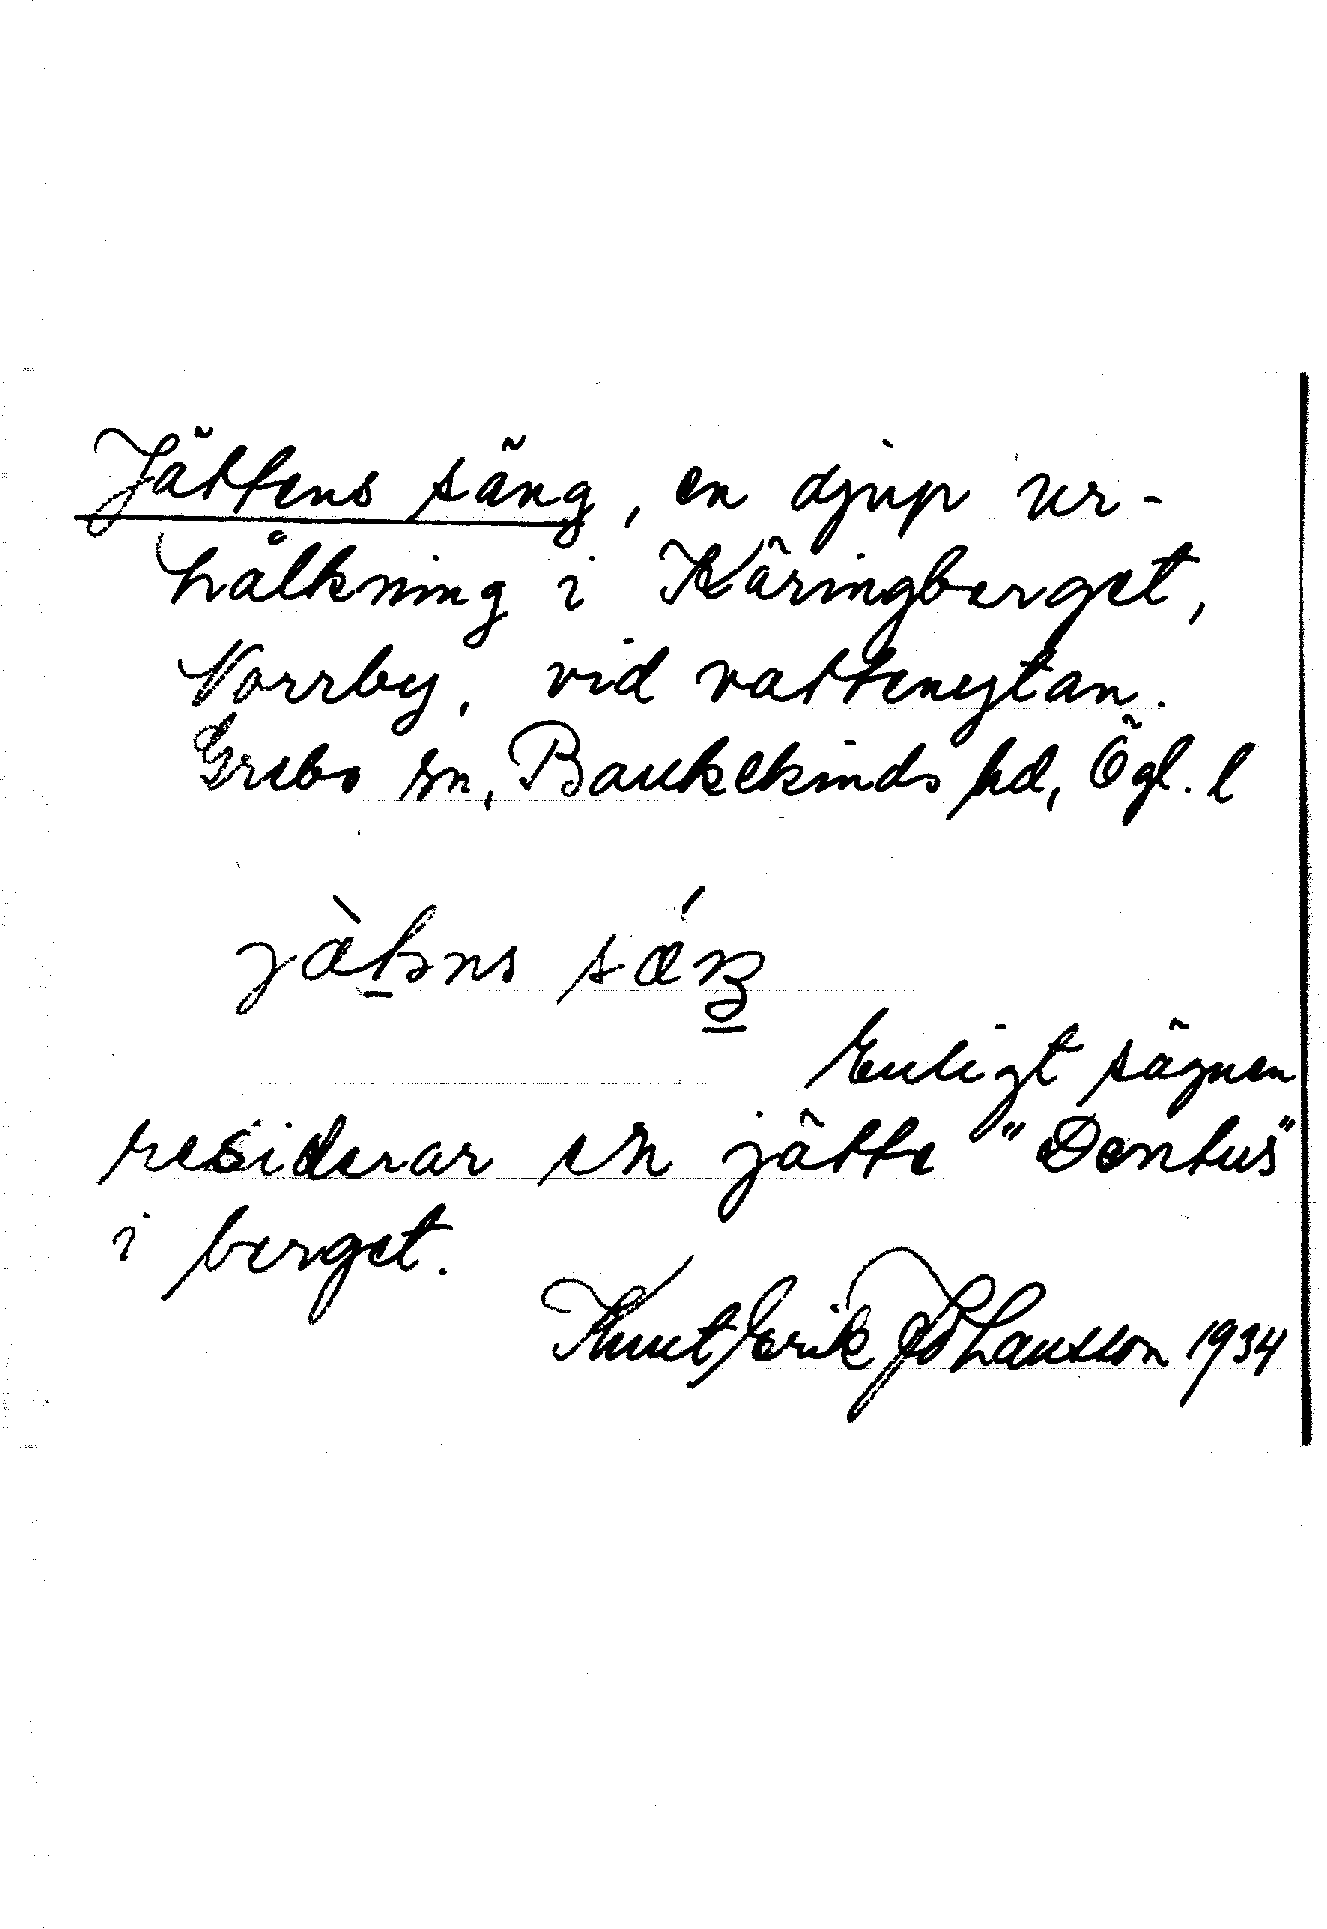 Jättens säng, en djup ur-
hålkning i Käringberget,
Norrby, vid vattenytan.
Grebo sn, Bankekinds hd, Ögl. l
Enligt sägnen
residerar en jätte "Dentus"
i berget.
Knut Erik Johansson 1934